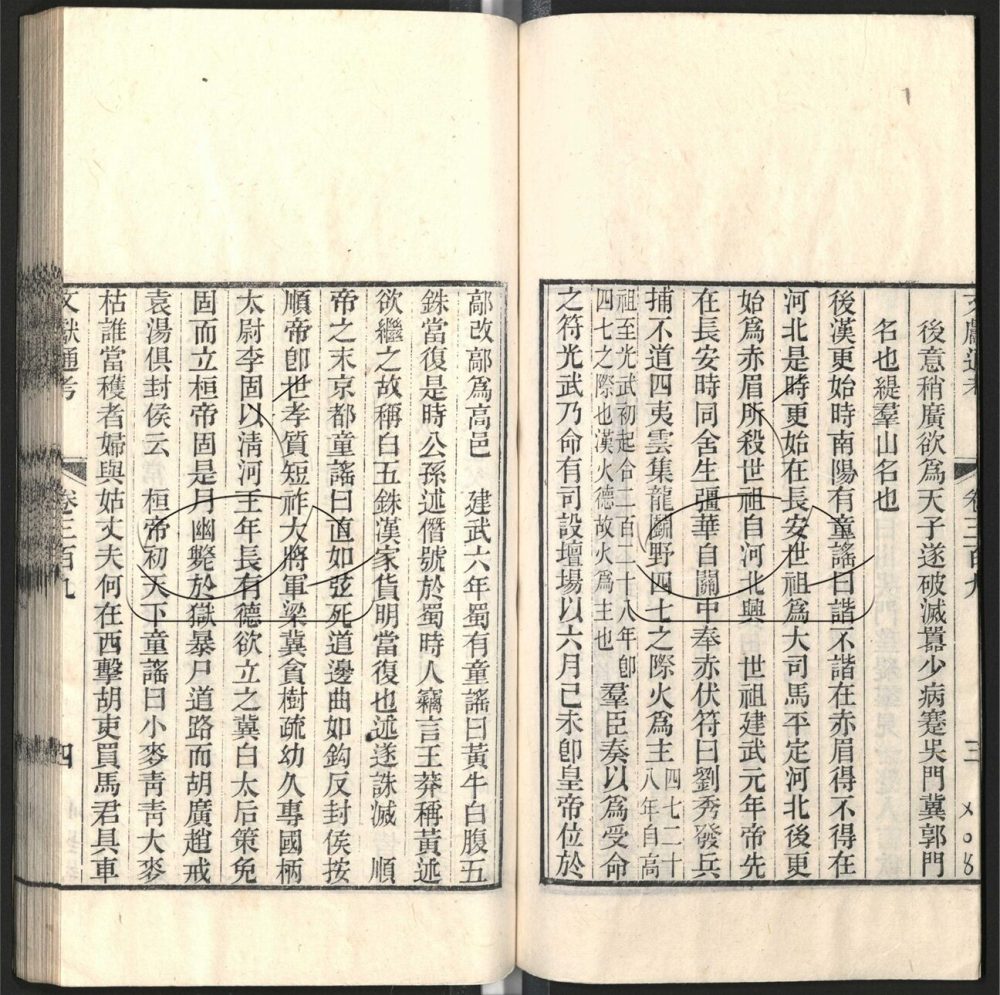 文獻通考 卷三百九 三
後意稍廣欲爲天子遂破滅囂少病蹇吳門冀郭門
名也緹羣山名也
後漢更始時南陽有童謠曰諧不諧在赤眉得不得在
河北是時更始在長安世祖爲大司馬平定河北後更
始爲赤眉所殺世祖自河北興 世祖建武元年帝先
在長安時同舍生彊華自關中奉赤伏符曰劉秀發兵
捕不道四夷雲集龍鬭野四七之際火爲主四七二十
八年自高
祖至光武初起合二百二十八年卽
四七之際也漢火德故火爲主也羣臣奏以爲受命
之符光武乃命有司設壇場以六月己未卽皇帝位於
鄗改鄗爲高邑 建武六年蜀有童謠曰黃牛白腹五
銖當復是時公孫述僭號於蜀時人竊言王莽稱黃述
欲繼之故稱白五銖漢家貨明當復也述遂誅滅 順
帝之末京都童謠曰直如弦死道邊曲如鈎反封侯按
順帝卽世孝質短祚大將軍梁冀貪樹疏幼久專國柄
太尉李固以清河王年長有德欲立之冀白太后策免
固而立桓帝固是月幽斃於獄暴尸道路而胡廣趙戒
袁湯俱封侯云 桓帝初天下童謠曰小麥靑靑大麥
枯誰當穫者婦與姑丈夫何在西擊胡吏買馬君具車
文獻通考 卷三百九 四